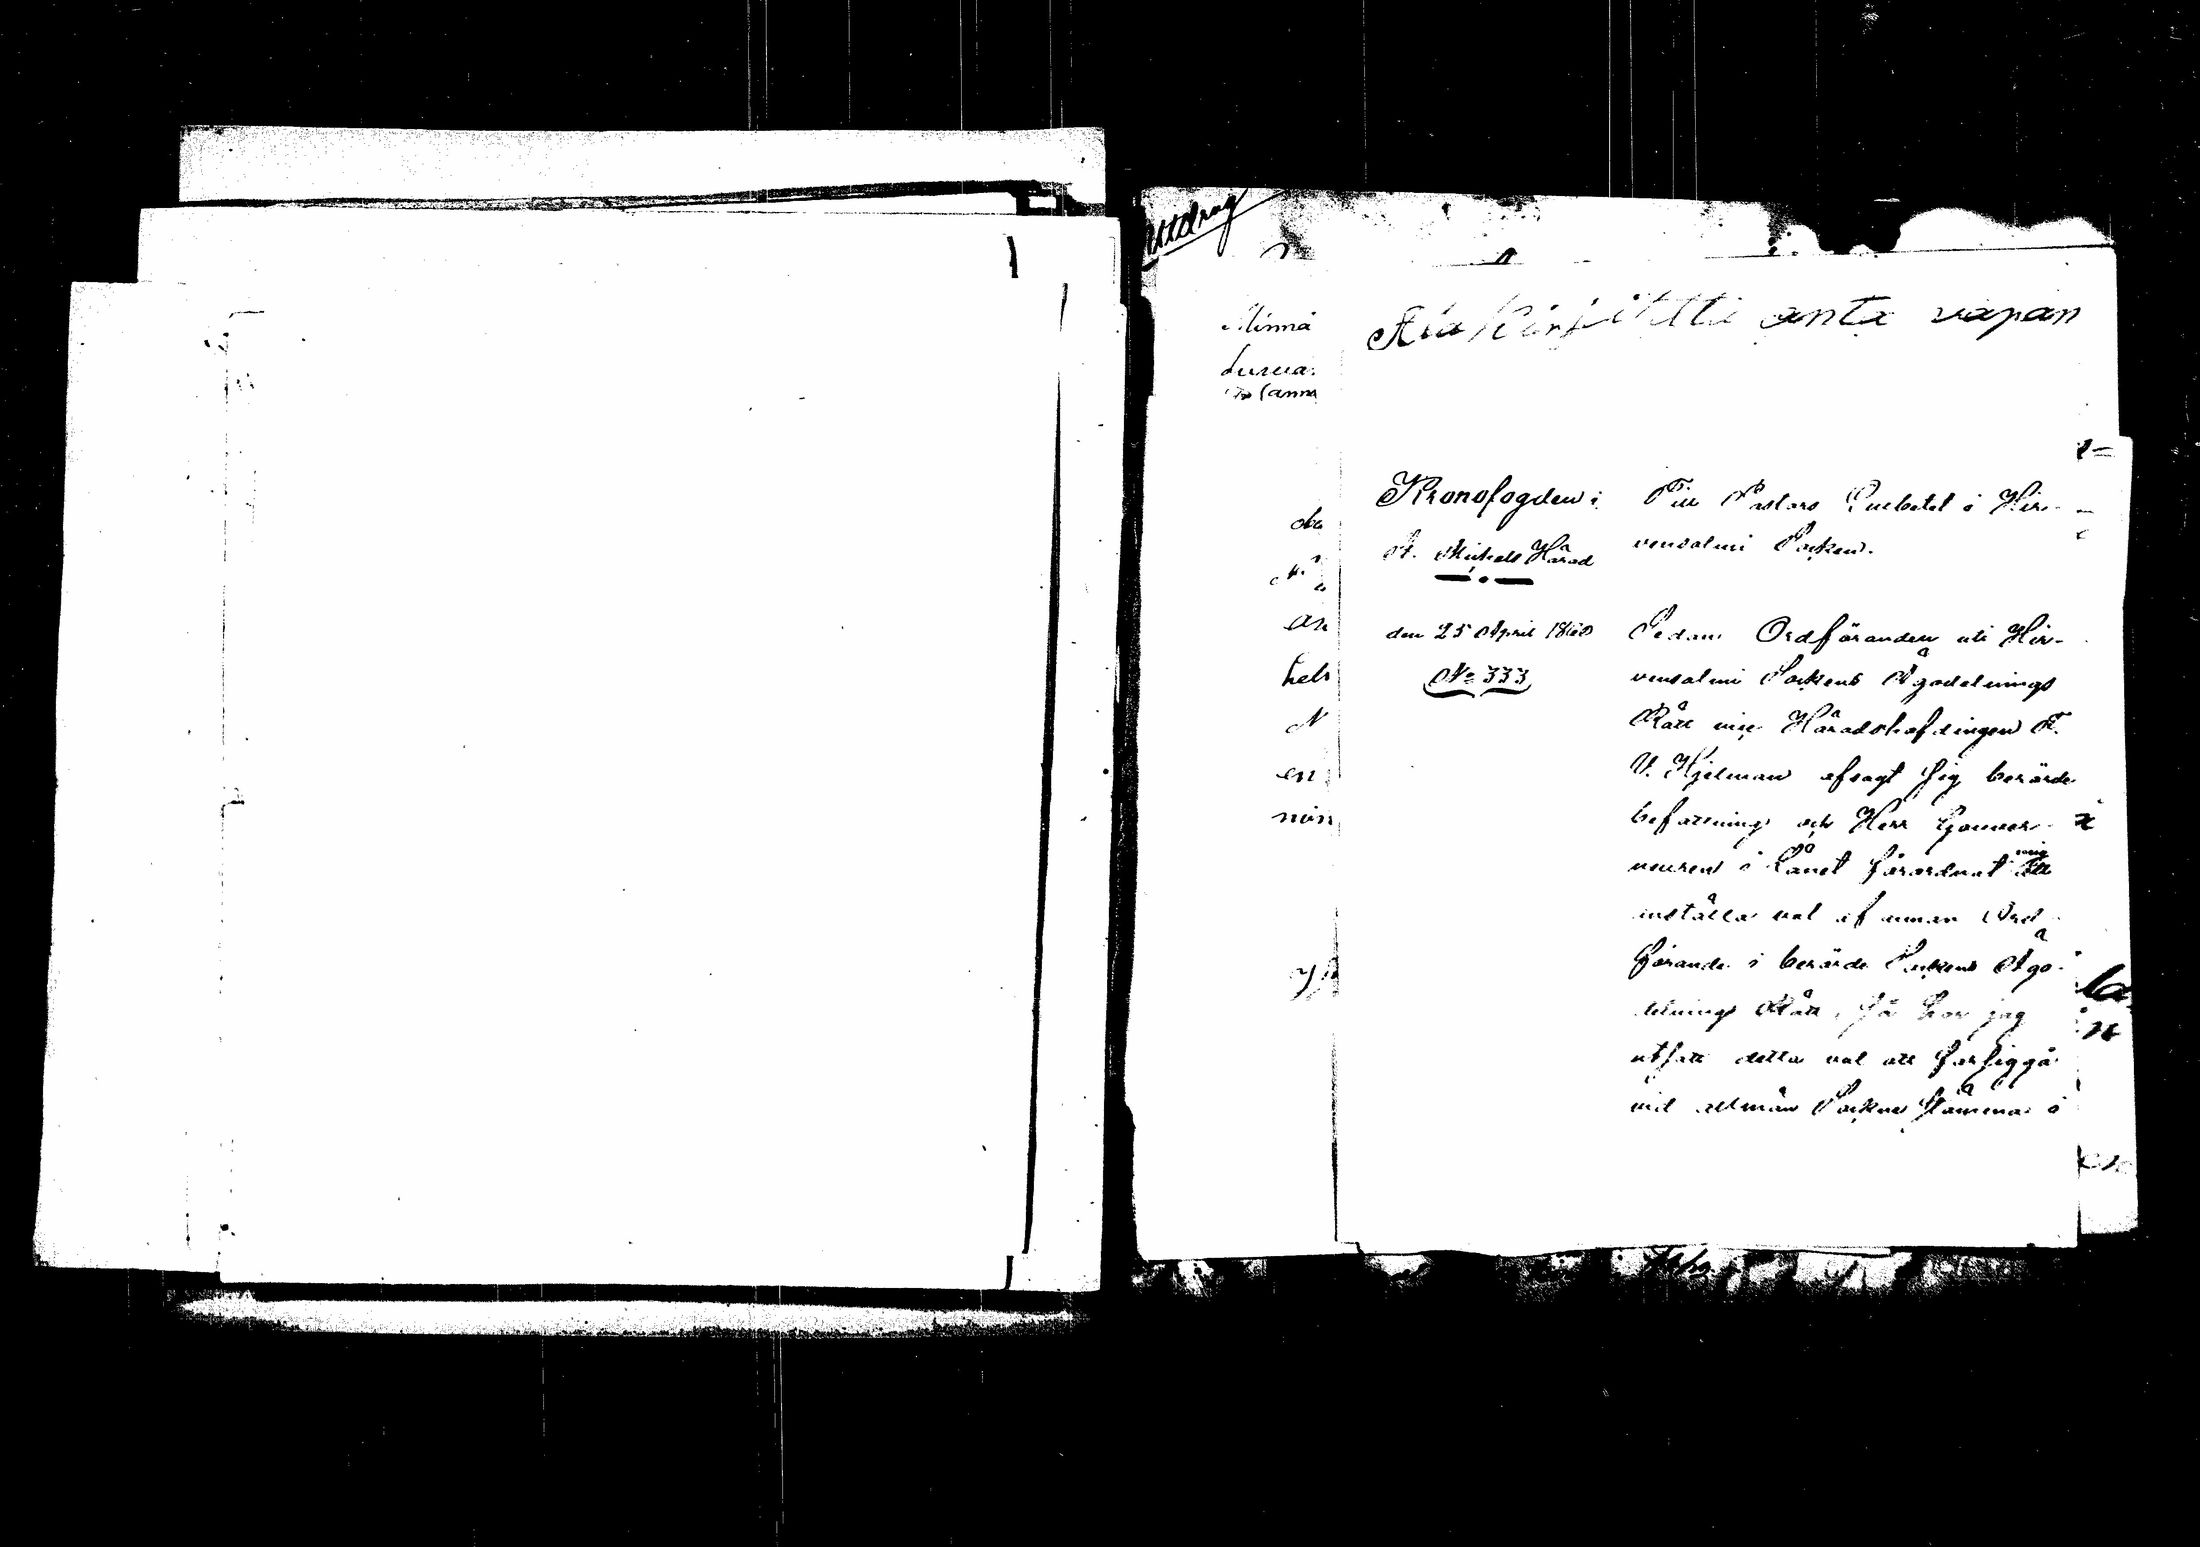 Utdrag
Minnä
anta vapan
Kronofogden i
St. Michels Härad
den 25 April 1860
No 333
Till Pastors Embetet i Hir-
vensalmi Socken.
Sedan Ordföranden uti Hir-
vensalmi Sockens Ägodelnings
Rätt vice Häradshöfdingen F.
V. Hjelman afsagt sig berörde
befattning och Herr Gouver-
neuren i Länet förordnat mig att
inställa val af annan Ord-
förande i berörde Sockens Ägo-
delnings Rätt, så har jag
utsatt detta val att försiggå
vid allmän Sockne stämma i